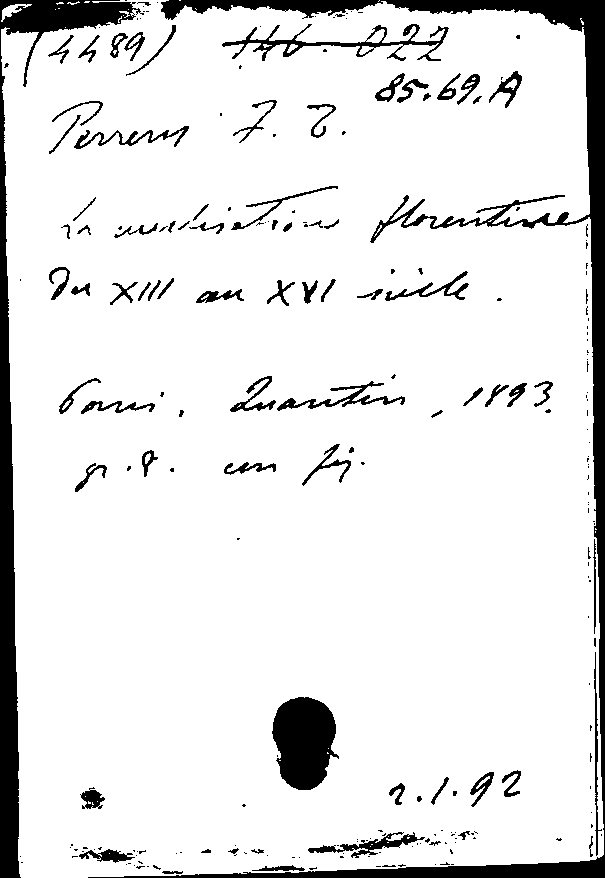 (4489) 146.022
85.69.A
Perrens F. T.
La civilisation florentine
du XIII au XVI siècle.
Paris, Quantin, 1893.
gr. 8. con fig.
2.1.92